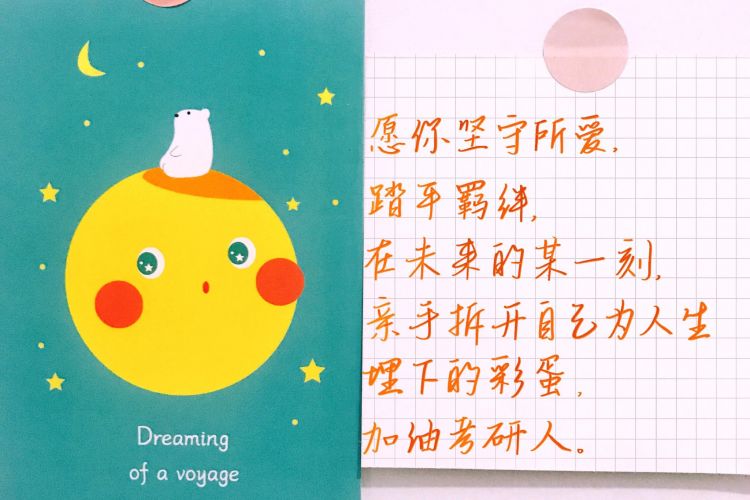 Dreaming
of a voyage
愿你坚守所爱,
踏平羁绊,
在未来的某一刻,
亲手拆开自己为人生
埋下的彩蛋,
加油考研人。